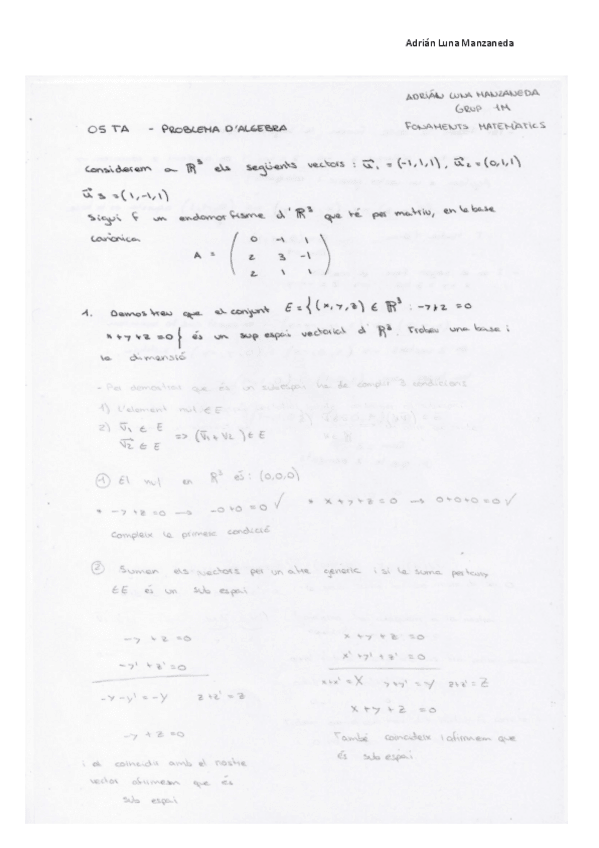 Adrián Luna Manzaneda
ADRIÁN LUNA MANZANEDA
GRUP 1M
05 TA - PROBLEMA D'ALGEBRA
FONAMENTS MATEMÀTICS
Considerem a ℝ³ els següents vectors: u⃗₁ = (-1,1,1), u⃗₂ = (0,1,1)
u⃗₃ = (1,-1,1)
Sigui f un endomorfisme d'ℝ³ que té per matriu, en la base
canònica
A = ( 0 -1 1
2 3 -1
2 1 1 )
1. Demostreu que el conjunt E = {(x,y,z) ∈ ℝ³ : -y+z = 0
x+y+z=0} és un sup espai vectorial d'ℝ³. Trobeu una base i
la dimensió
- Per demostrar que és un subespai ha de complir 3 condicions
1) L'element nul ∈ E
2) v₁ ∈ E
v₂ ∈ E => (v₁+v₂) ∈ E
① El nul en ℝ³ és: (0,0,0)
* -y+z=0 → -0+0=0 ✓ * x+y+z=0 → 0+0+0=0 ✓
Compleix la primera condició
② Sumem els vectors per un altre genèric i si la suma pertany
∈E és un sub espai
-y+z=0 x+y+z=0
-y'+z'=0 x'+y'+z'=0
-y-y'=-Y z+z'=Z x+x'=X y+y'=Y z+z'=Z
-y+z=0 x+y+z=0
i al coincidir amb el nostre
vector afirmem que és
sub espai
També coincideix i afirmem que
és sub espai